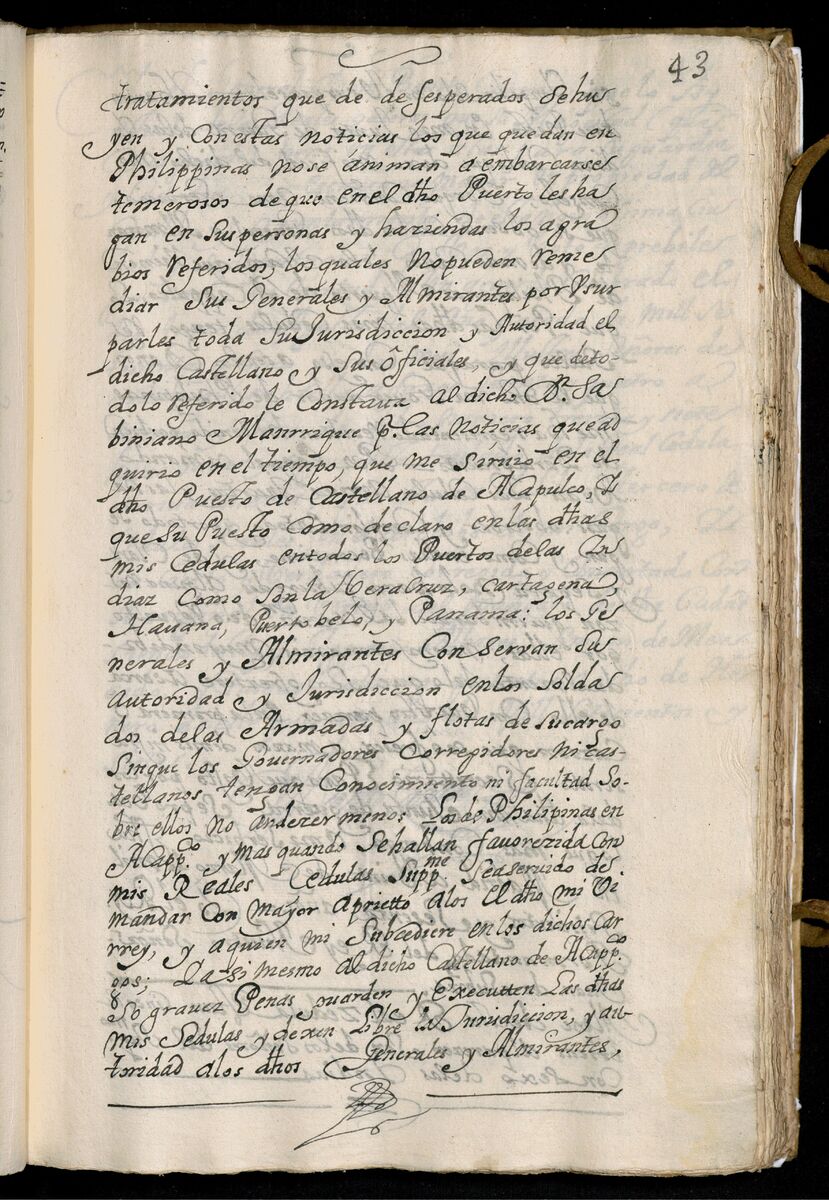 43
tratamientos que de desesperados sehu
yen y Con estas noticias los que quedan en
Philippinas nose animan a embarcarse
temerosos de que en el dho Puerto les ha
gan en sus personas y haziendas los agra
bios referidos, los quales no pueden reme
diar sus Generales y Almirantes por Vsur
parles toda su Jurisdiccion y Autoridad el
dicho Castellano y sus oficiales, y que deto-
do lo referido le Constava al dicho Dn. Sa
biniano Manrrique p. las noticias que ad
quirio en el tiempo, que me siruio en el
dho Puesto de Castellano de Acapulco, Y
que su Puesto Como declaro en las dhas
mis Cedulas en todos los Puertos de las In
diaz Como son la Veracruz, Cartagena,
Havana, Puertobelo, y Panama: los Ge
nerales y Almirantes Conservan su
autoridad y Jurisdiccion en los solda
dos de las Armadas y flotas de su cargo
sin que los Governadores Corregidores ni Cas-
tellanos tengan Conocimiento ni facultad so-
bre ellos no an de zer menos Los de Philipinas en
Acappco. y mas quando se hallan favorezida Con
mis Reales Cedulas Suppme. sea seruido de
mandar Con mayor aprietto a los El dho mi Vi
rrey, y a quien mi Subcediere en los dichos Car
gos; Y asi mesmo al dicho Castellano de Acappco
8
So gravez Penas guarden y Executten Las dhas
mis Sedulas y dexen Libre la Jurisdiccion, y au-
toridad a los dhos Generales y Almirantes,